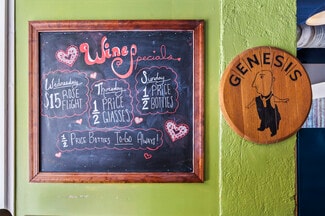 Wine Specials
Wednesday
$15 ROSE
FLIGHT
Thursday
1/2 PRICE
GLASSES
Sunday
1/2 PRICE
BOTTLES
1/2 PRICE BOTTLES TO-GO ALWAYS!
GENESIS